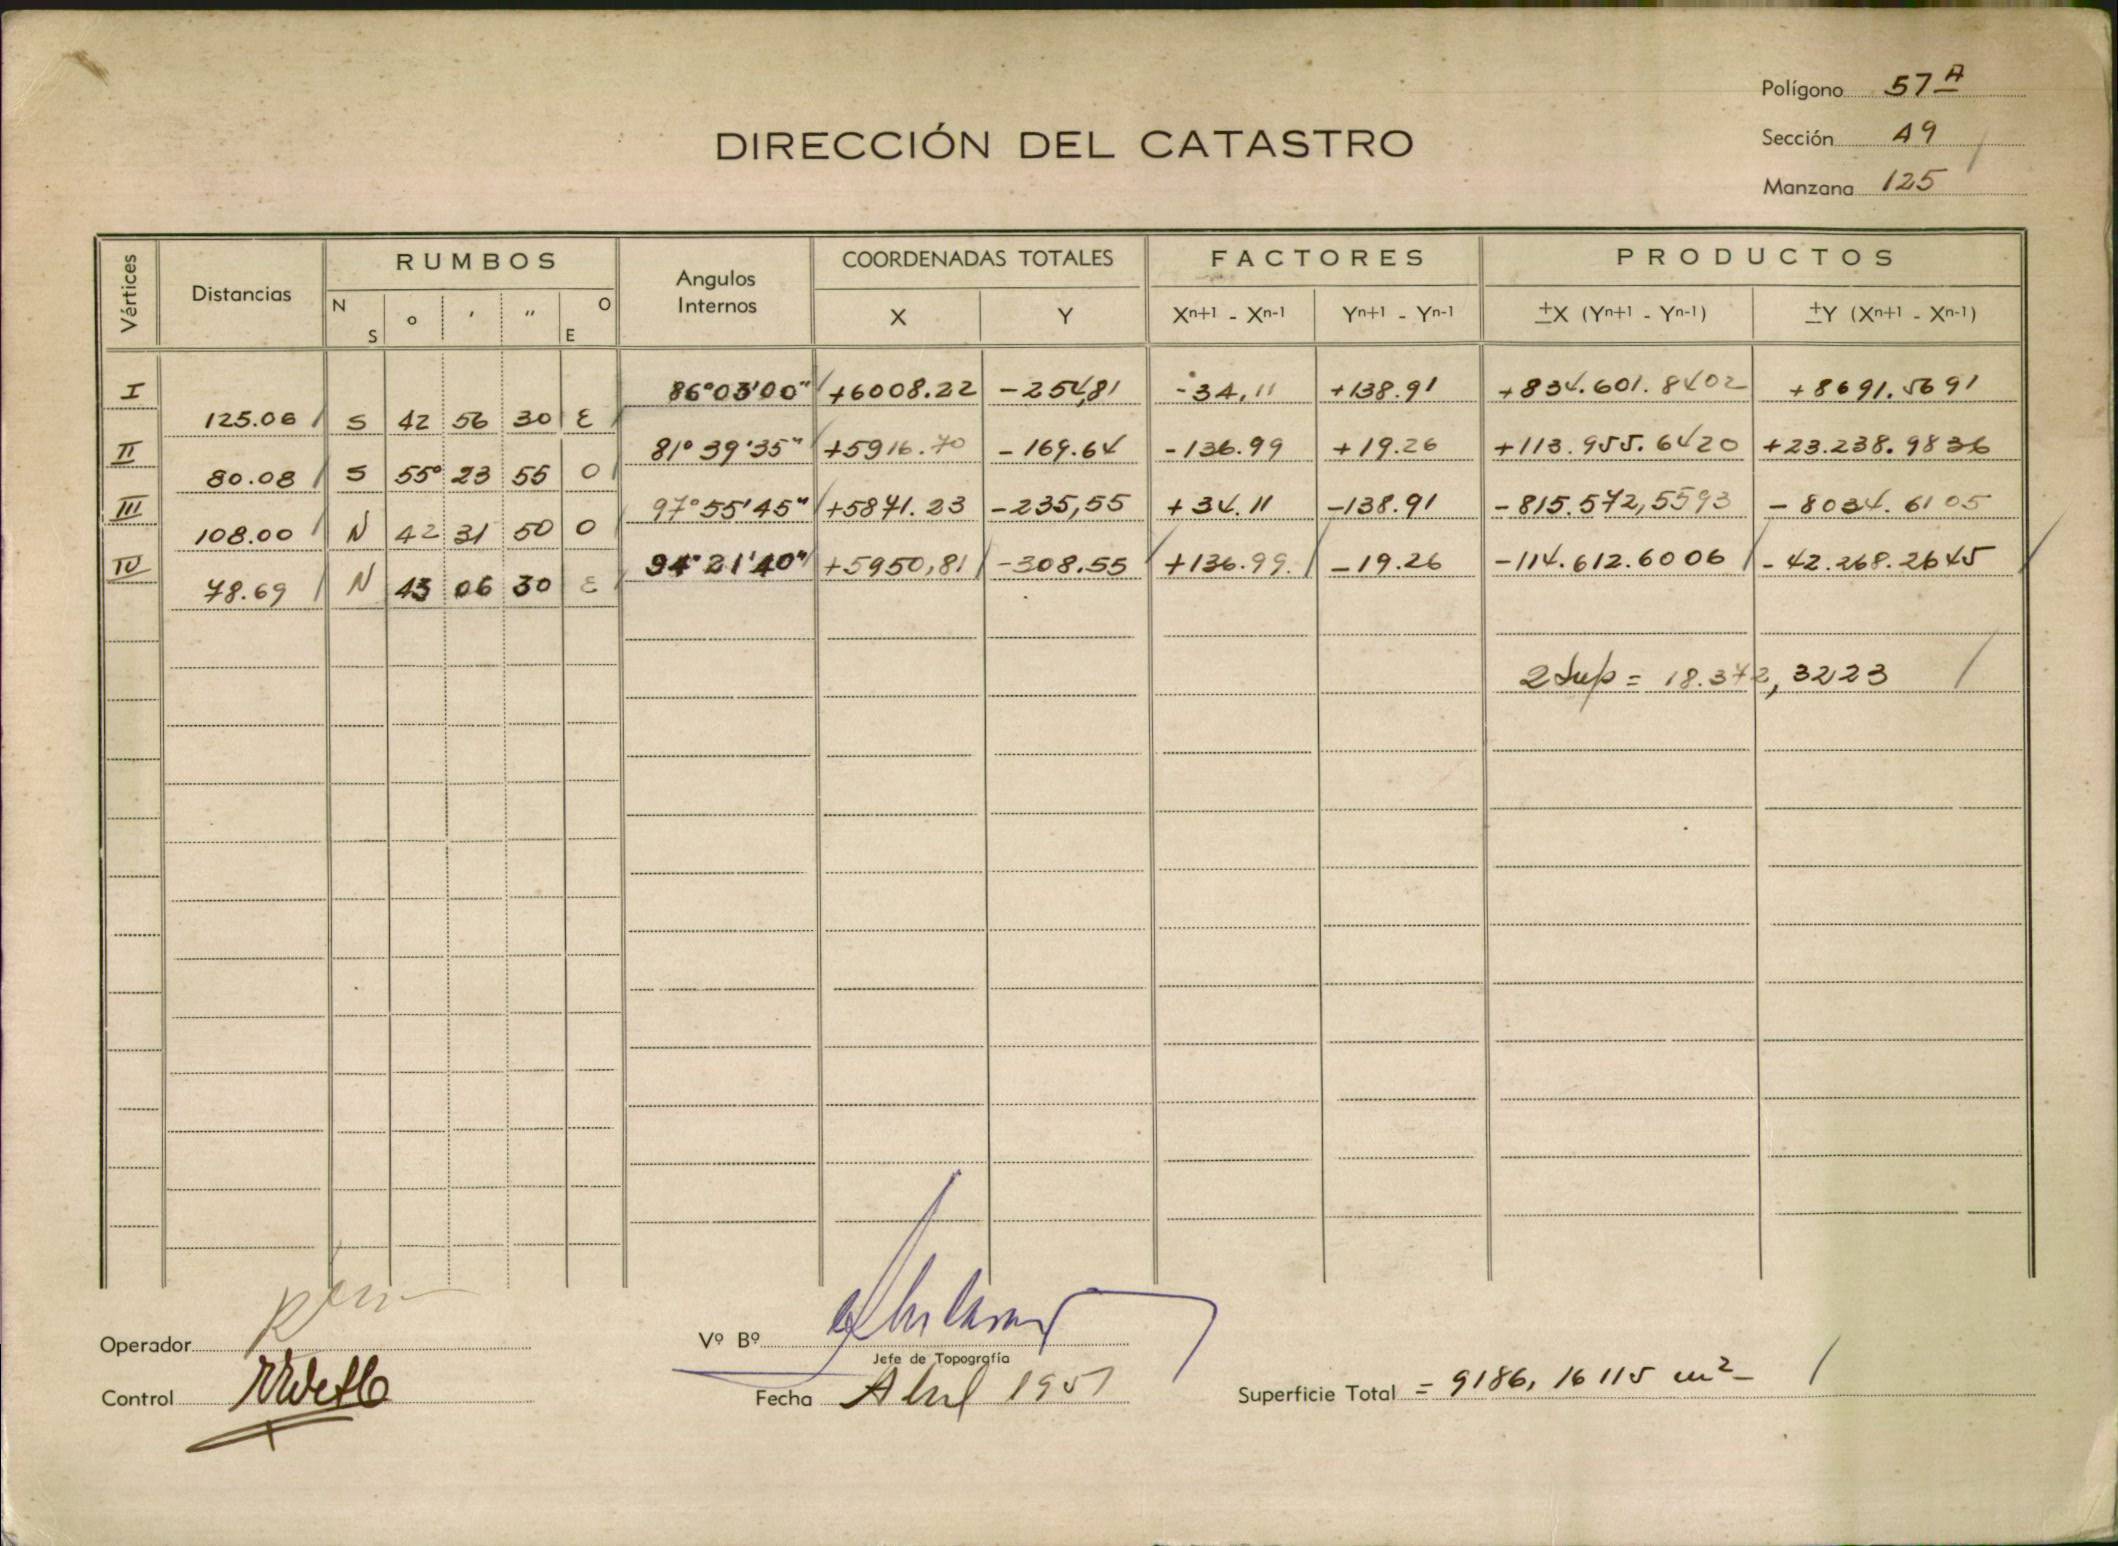 Polígono 57 A
DIRECCIÓN DEL CATASTRO
Sección 49
Manzana 125
Vértices Distancias RUMBOS Angulos Internos COORDENADAS TOTALES FACTORES PRODUCTOS
N S o ' '' O E X Y Xn+1 - Xn-1 Yn+1 - Yn-1 ±X (Yn+1 - Yn-1) ±Y (Xn+1 - Xn-1)
I 86°03'00" +6008.22 -254,81 -34,11 +138.91 +834.601.8402 +8691.5691
125.06 S 42 56 30 E
II 81°39'35" +5916.70 -169.64 -136.99 +19.26 +113.955.6420 +23.238.9836
80.08 S 55° 23 55 O
III 97°55'45" +5871.23 -235,55 +34.11 -138.91 -815.572,5593 -8034.6105
108.00 N 42 31 50 O
IV 94°21'40" +5950,81 -308.55 +136.99. -19.26 -114.612.6006 -42.268.2645
78.69 N 43 06 30 E
2 Sup = 18.372,3223
Operador
Vº Bº
Jefe de Topografía
Control
Fecha Abril 1951
Superficie Total = 9186,16115 m2